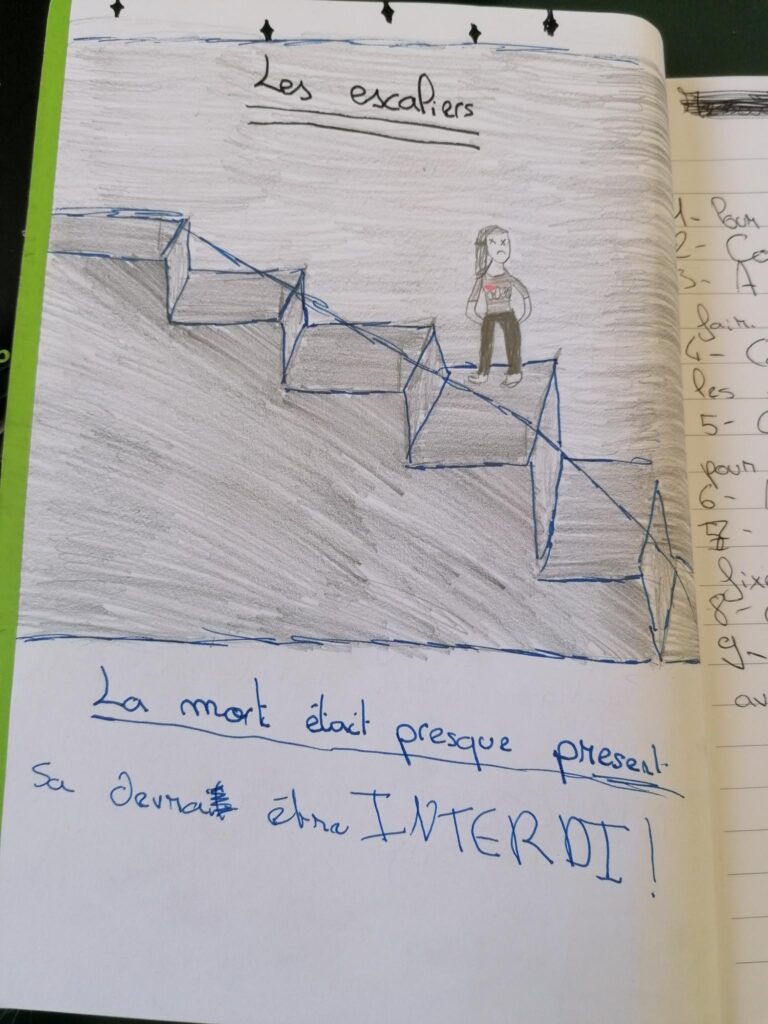 Les escaliers
La mort était presque present
Sa devrai être INTERDI !
1- Pour
2- Co
3- A
fair.
4- C
les
5- C
pour
6-
7-
fixe
8-
9-
av